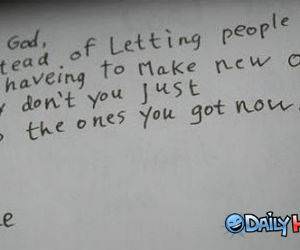 God,
tead of Letting people
haveing to Make new o
don't you Just
the ones you got now.
e
DAILY H